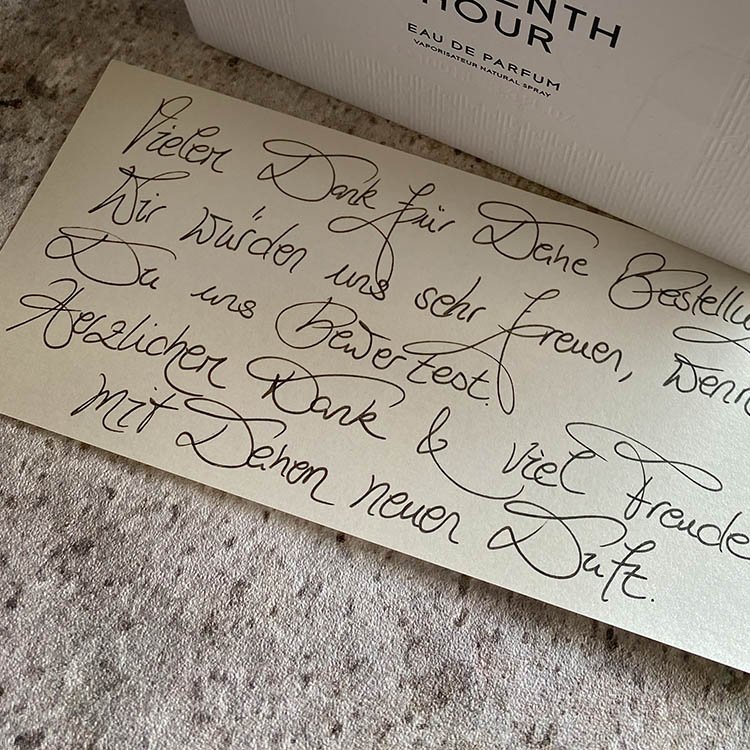 ENTH
HOUR
EAU DE PARFUM
VAPORISATEUR NATURAL SPRAY
Vielen Dank für Deine Bestellu
Wir würden uns sehr freuen, wenn
Du uns bewertest.
Herzlichen Dank & viel Freude
mit Deinem neuen Duft.